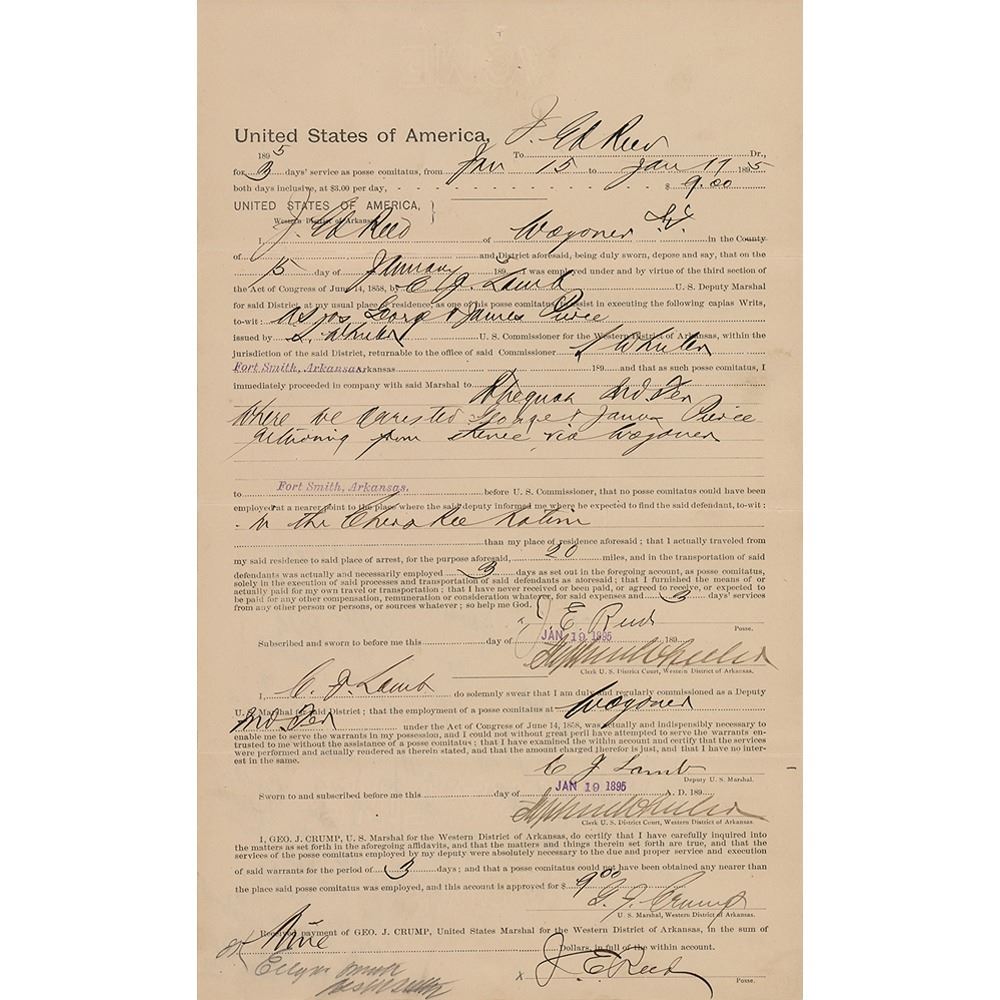 United States of America,
J. Ed Reed
1895 To Dr.,
for 3 days' service as posse comitatus, from Jan 15 to Jan 17 1895
both days inclusive, at $3.00 per day, - - - - - - - - - - - - $ 9.00
UNITED STATES OF AMERICA, }
Western District of Arkansas.
I, J. Ed Reed of Wagoner in the County
of and District aforesaid, being duly sworn, depose and say, that on the
15 day of January 1895 I was employed under and by virtue of the third section of
the Act of Congress of June 14, 1858, by C. J. Lamb U. S. Deputy Marshal
for said District, at my usual place of residence, as one of his posse comitatus, to assist in executing the following capias Writs,
to-wit: as pos George & James Pierce
issued by S. Wheeler U. S. Commissioner for the Western District of Arkansas, within the
jurisdiction of the said District, returnable to the office of said Commissioner S Wheeler
Fort Smith, Arkansas, Arkansas 189 and that as such posse comitatus, I
immediately proceeded in company with said Marshal to Ind. Ter
where we arrested George & James Pierce
returning from thence via Wagoner
to Fort Smith, Arkansas. before U. S. Commissioner, that no posse comitatus could have been
employed at a nearer point to the place where the said deputy informed me where he expected to find the said defendant, to-wit:
in the Cherokee Nation
than my place of residence aforesaid; that I actually traveled from
my said residence to said place of arrest, for the purpose aforesaid, 20 miles, and in the transportation of said
defendants was actually and necessarily employed 3 days as set out in the foregoing account, as posse comitatus,
solely in the execution of said processes and transportation of said defendants as aforesaid; that I furnished the means of or
actually paid for my own travel or transportation; that I have never received or been paid, or agreed to receive, or expected to
be paid for any other compensation, remuneration or consideration whatever, for said expenses and 3 days' services
from any other person or persons, or sources whatever; so help me God.
x J. E. Reed
Posse.
Subscribed and sworn to before me this day of JAN 19 1895 189
Stephen Wheeler
Clerk U. S. District Court, Western District of Arkansas.
I, C. J. Lamb do solemnly swear that I am duly and regularly commissioned as a Deputy
U. S. Marshal for said District; that the employment of a posse comitatus at Wagoner
Ind. Ter under the Act of Congress of June 14, 1858, was actually and indispensibly necessary to
enable me to serve the warrants in my possession, and I could not without great peril have attempted to serve the warrants en-
trusted to me without the assistance of a posse comitatus; that I have examined the within account and certify that the services
were performed and actually rendered as therein stated, and that the amount charged therefor is just, and that I have no inter-
est in the same.
C J Lamb
Deputy U. S. Marshal.
Sworn to and subscribed before me this day of JAN 19 1895 A. D. 189
Stephen Wheeler
Clerk U. S. District Court, Western District of Arkansas
I, GEO. J. CRUMP, U. S. Marshal for the Western District of Arkansas, do certify that I have carefully inquired into
the matters as set forth in the aforegoing affidavits, and that the matters and things therein set forth are true, and that the
services of the posse comitatus employed by my deputy were absolutely necessary to the due and proper service and execution
of said warrants for the period of 3 days; and that a posse comitatus could not have been obtained any nearer than
the place said posse comitatus was employed, and this account is approved for $ 9 00
G. J. Crump
U. S. Marshal, Western District of Arkansas.
Received payment of GEO. J. CRUMP, United States Marshal for the Western District of Arkansas, in the sum of
Nine Dollars, in full of the within account.
x J. E. Reed
Posse.